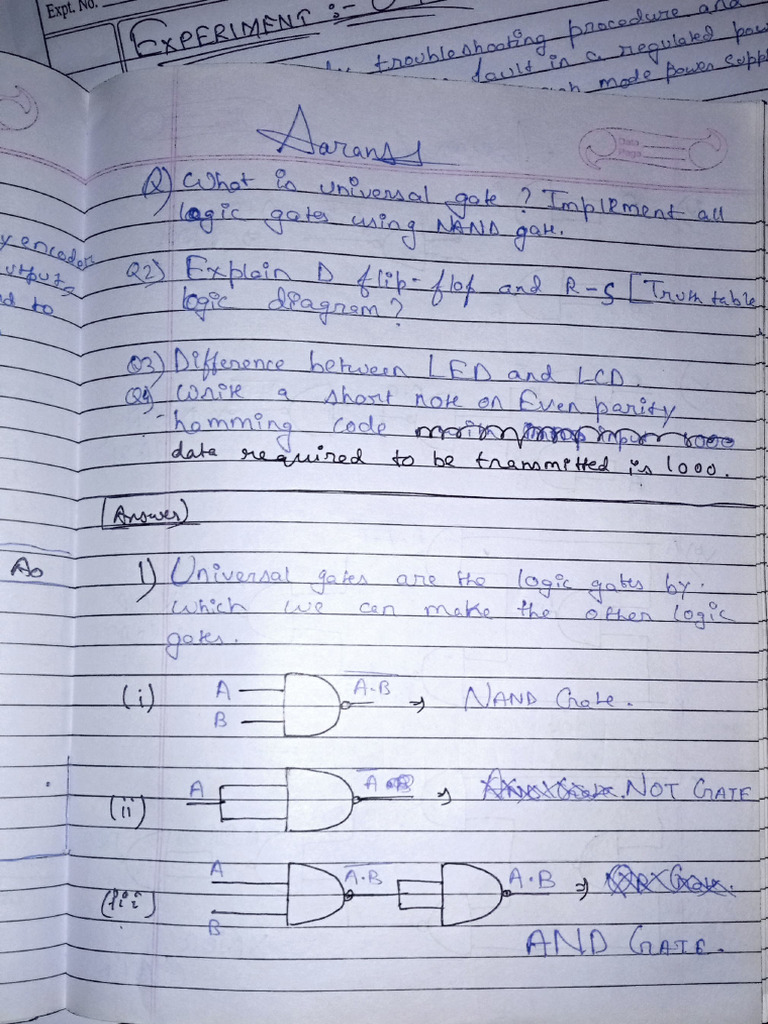 Expt. No.
EXPERIMENT :-
troubleshooting procedure and
fault in a regulated pow
mode power suppl
Aarans
Data
Page
Q) What is universal gate ? Implement all
logic gates using NAND gate.
y encoder
utputs
d to
Q2) Explain D flip-flop and R-S [Truth table
logic diagram?
Q3) Difference between LED and LCD.
Q4) Write a short note on Even parity
hamming code
data required to be transmitted is 1000.
Answer)
A0
1) Universal gates are the logic gates by
which we can make the other logic
gates.
(i) A B A·B ⇒ NAND Gate.
(ii) A A ⇒ NOT GATE
(iii) A B A·B A·B ⇒
AND GATE.